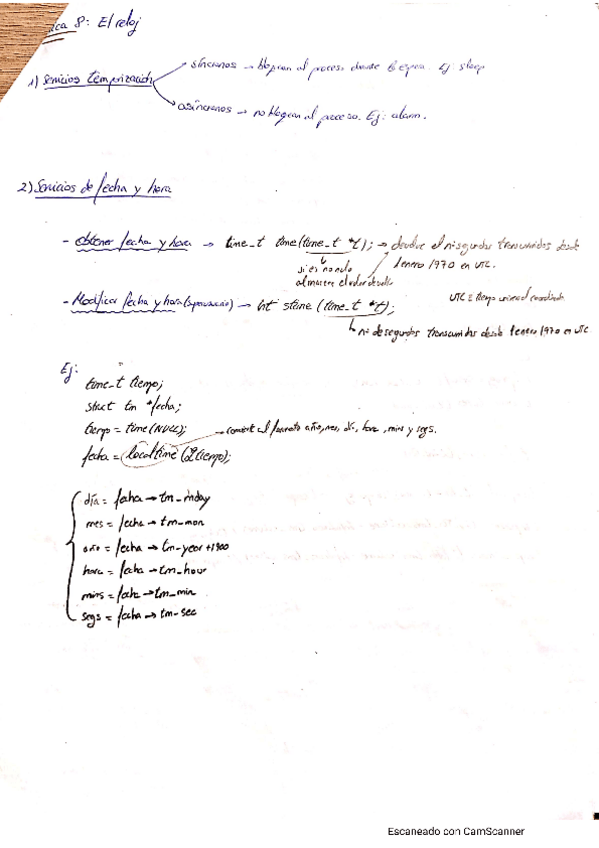 ica 8: El reloj
síncronos → bloquean al proceso durante la espera. Ej: sleep
1) Servicios temporización
asíncronos → no bloquean al proceso. Ej: alarm.
2) Servicios de fecha y hora
- Obtener fecha y hora → time_t time(time_t *t); → devuelve el nº segundos transcurridos desde
1 enero 1970 en UTC.
si es no nulo
almacena el valor devuelto
- Modificar fecha y hora (superusuario) → int stime (time_t *t);
UTC = tiempo universal coordinado
nº de segundos transcurridos desde 1 enero 1970 en UTC
Ej:
time_t tiempo;
struct tm *fecha;
tiempo = time(NULL);
convierte al formato año, mes, día, hora, mins y segs.
fecha = localtime (&tiempo);
día = fecha → tm_mday
mes = fecha → tm_mon
año = fecha → tm_year + 1900
hora = fecha → tm_hour
mins = fecha → tm_min
segs = fecha → tm_sec
Escaneado con CamScanner